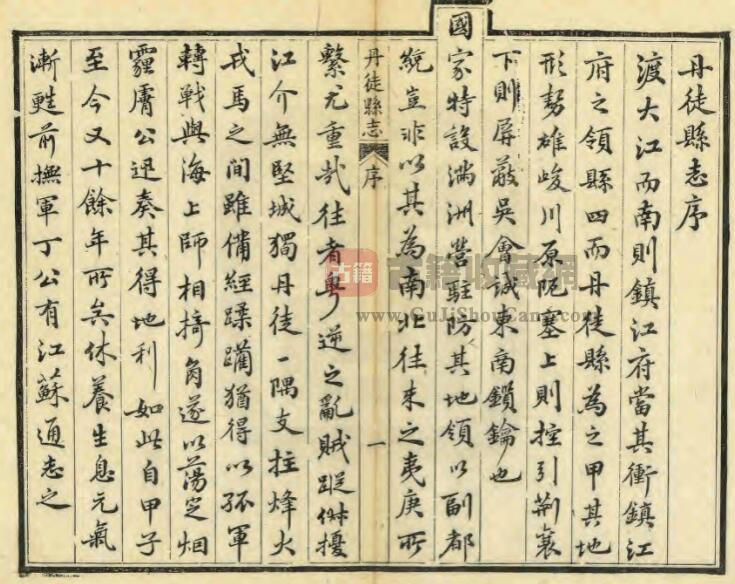 丹徒縣志序
渡大江而南則鎮江府當其衝鎮江
府之領縣四而丹徒縣為之甲其地
形勢雄峻川原阨塞上則控引荆襄
下則屏蔽吳會誠東南鎖鑰也
國家特設滿洲營駐防其地領以副都
統豈非以其為南北往來之夷庚所
丹徒縣志
序
一
繫尤重哉往者粵逆之亂賊蹤倂擾
江介無堅城獨丹徒一隅支拄烽火
戎馬之間雖備經蹂躪猶得以孤軍
轉戰與海上師相掎角遂以蕩定烟
霾膚公迅奏其得地利如此自甲子
至今又十餘年所矣休養生息元氣
漸甦前撫軍丁公有江蘇通志之
古籍
古籍收藏網
www.GuJiShouCang.com